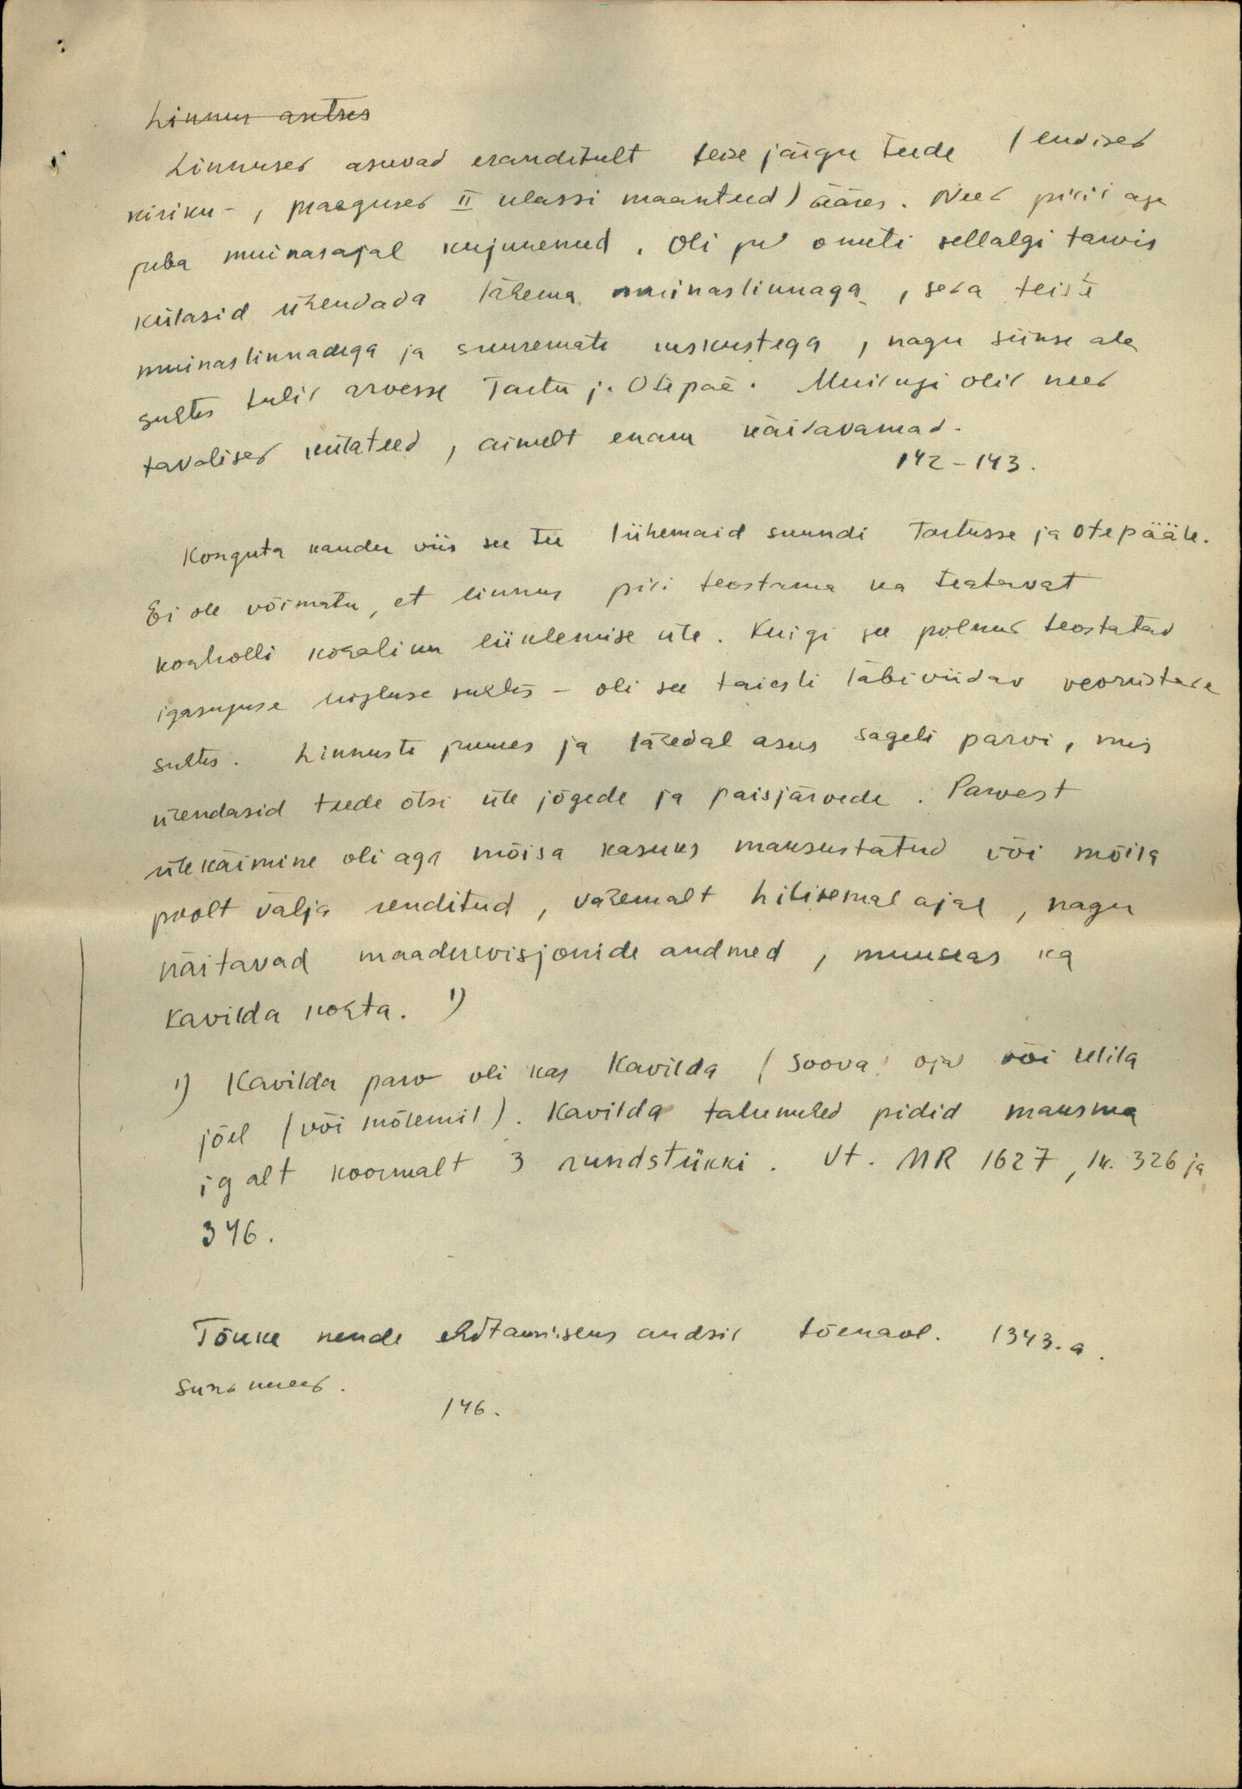 Linnus asetses
Linnused asuvad eranditult teise järgu teede (endised
kiriku-, praegused II klassi maanteed) ääres. Need pidid aga
juba muinasajal kujunenud. Oli ju ometi sellalgi tarvis
külasid ühendada lähema muinaslinnaga, seda teiste
muinaslinnadega ja suuremate keskustega, nagu siinse ala
suhtes tulid arvesse Tartu ja Otepää. Muidugi olid need
tavalised külateed, ainult enam käidavamad.
142-143.
Konguta kaudu viis see tee lühemaid suundi Tartusse ja Otepääle.
Ei ole võimatu, et linnus pidi teostama ka teatavat
kontrolli kohaliku liiklemise üle. Kuigi see polnud teostatav
igasuguse liikluse suhtes - oli see täiesti läbiviidav veorustade
suhtes. Linnuste juures ja lähedal asus sageli parvi, mis
ühendasid teede otsi üle jõgede ja paisjärvede. Parvest
ülekäimine oli aga mõisa kasuks maksustatud või mõisa
poolt välja renditud, vähemalt hilisemal ajal, nagu
näitavad maadrevisjonide andmed, muuseas ka
Kavilda kohta. 1)
1) Kavilda parv oli kas Kavilda (Soova) ojal või Elila
jõel (või mõlemil). Kavilda talumehed pidid maksma
igalt koormalt 3 rundstükki. Vt. MR 1627, lk. 326 ja
346.
Tõuke nende ehitamiseks andsid tõenäol. 1343. a.
sündmused.
146.